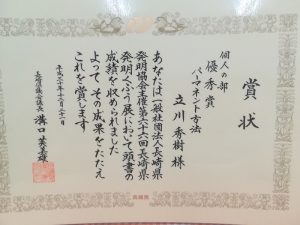 賞状
個人の部
優秀賞
パーマネント方法
立川秀樹様
あなたは一般社団法人長崎県
発明協会主催第六十六回長崎県
発明くふう展において頭書の
成績を収められました
よって、その成果をたたえ
これを賞します
平成三十年十一月二十一日
長崎県議会議長